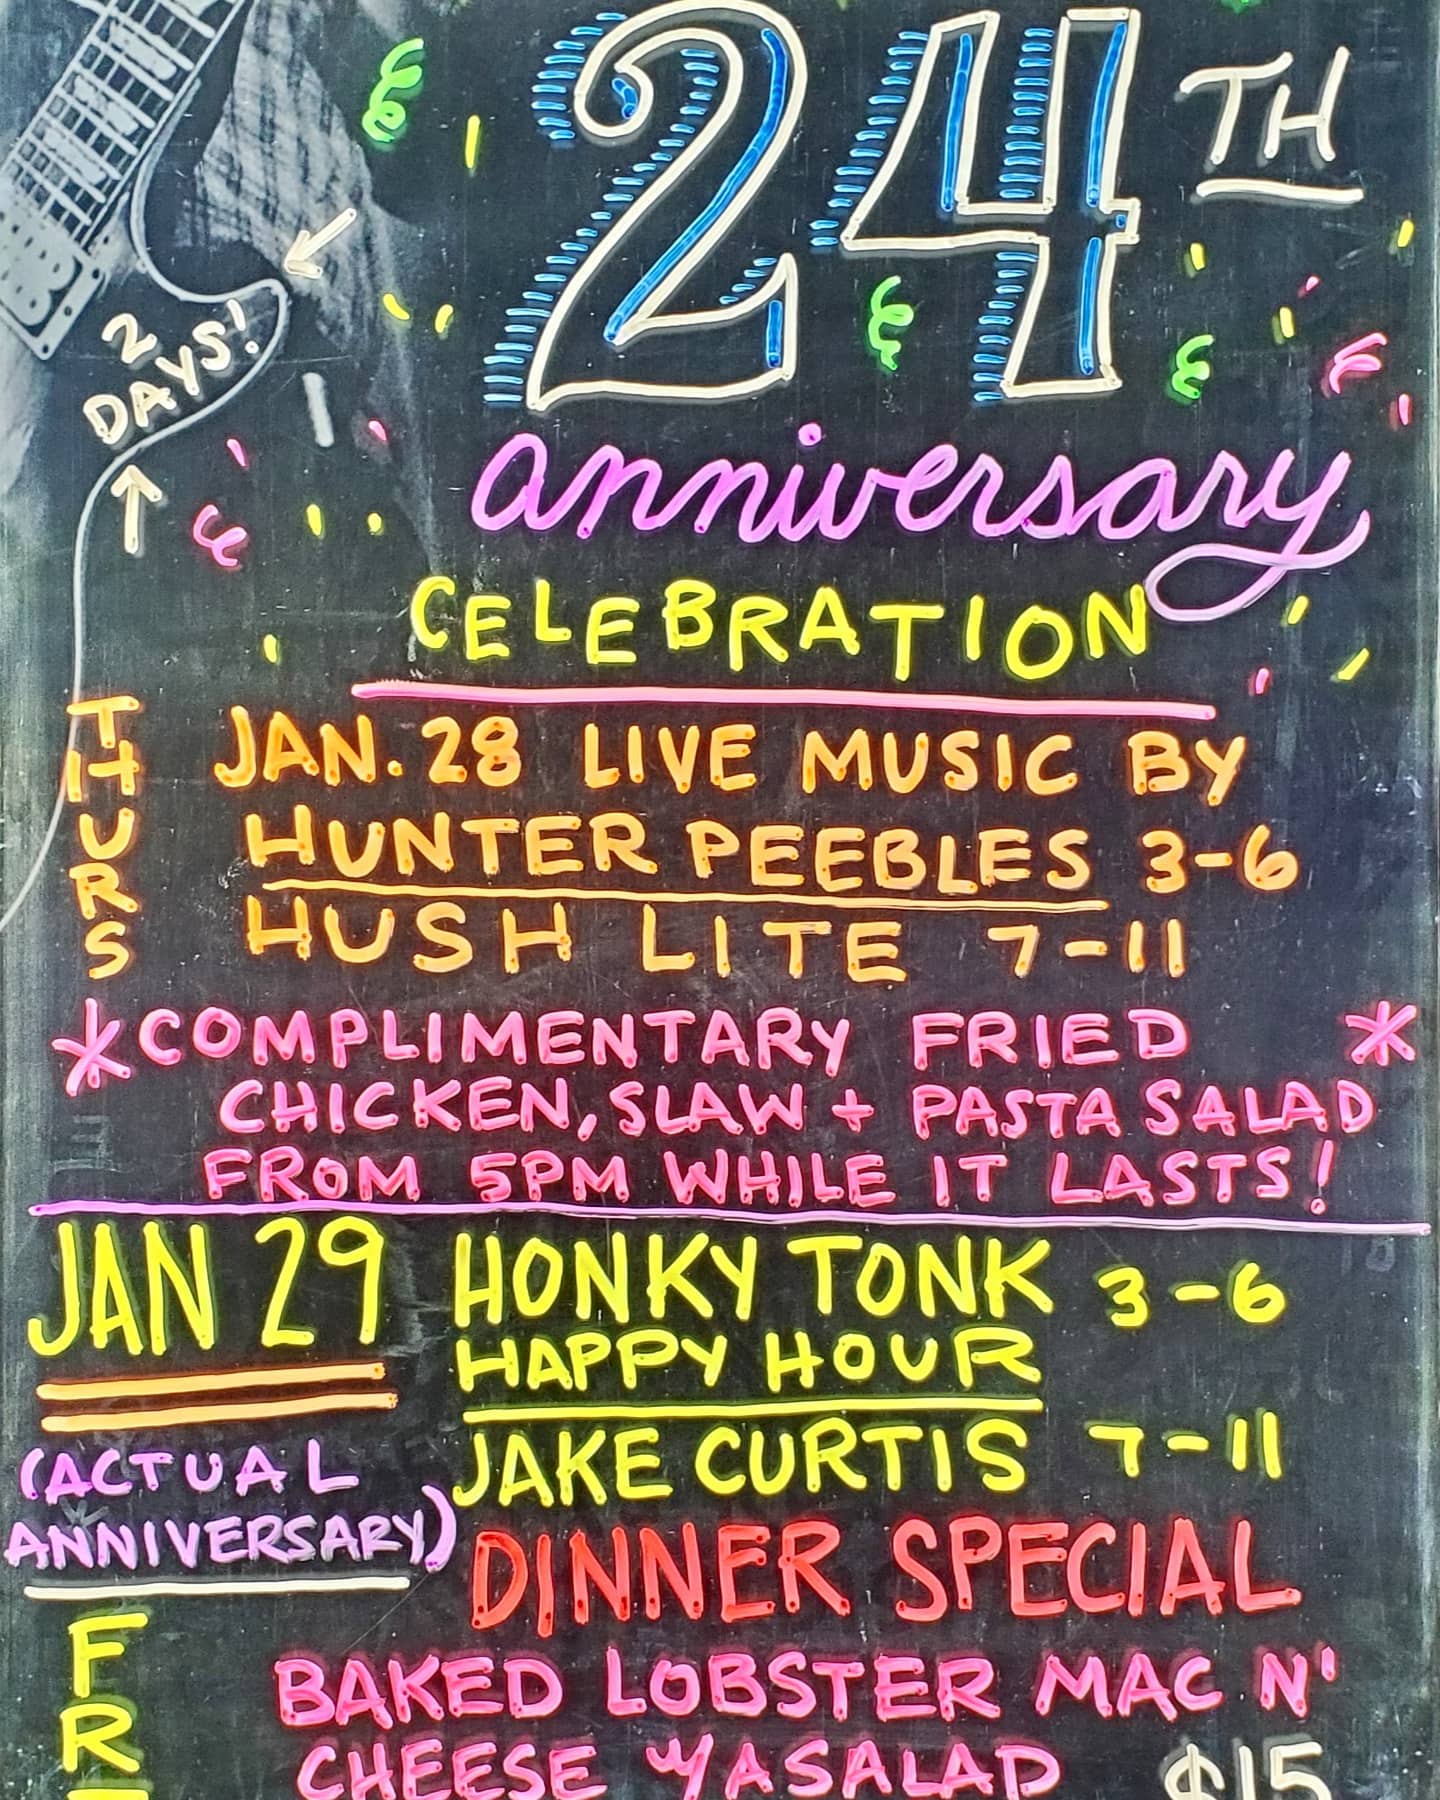 24TH
2
DAYS!
anniversary
CELEBRATION
THURS
JAN. 28 LIVE MUSIC BY
HUNTER PEEBLES 3-6
HUSH LITE 7-11
*COMPLIMENTARY FRIED *
CHICKEN, SLAW + PASTA SALAD
FROM 5PM WHILE IT LASTS!
JAN 29
HONKY TONK 3-6
HAPPY HOUR
JAKE CURTIS 7-11
(ACTUAL
ANNIVERSARY)
DINNER SPECIAL
FR
BAKED LOBSTER MAC N'
CHEESE W/A SALAD $15